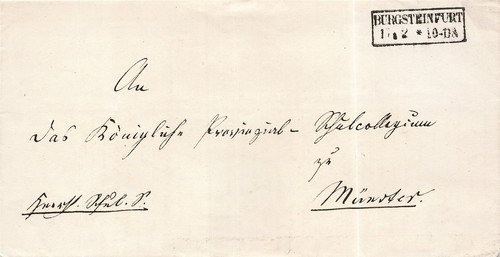 BURGSTEINFURT
17 2 * 10-11
An
das Königliche Provinzial- Schulcollegium
zu
Münster.
Schul. S.